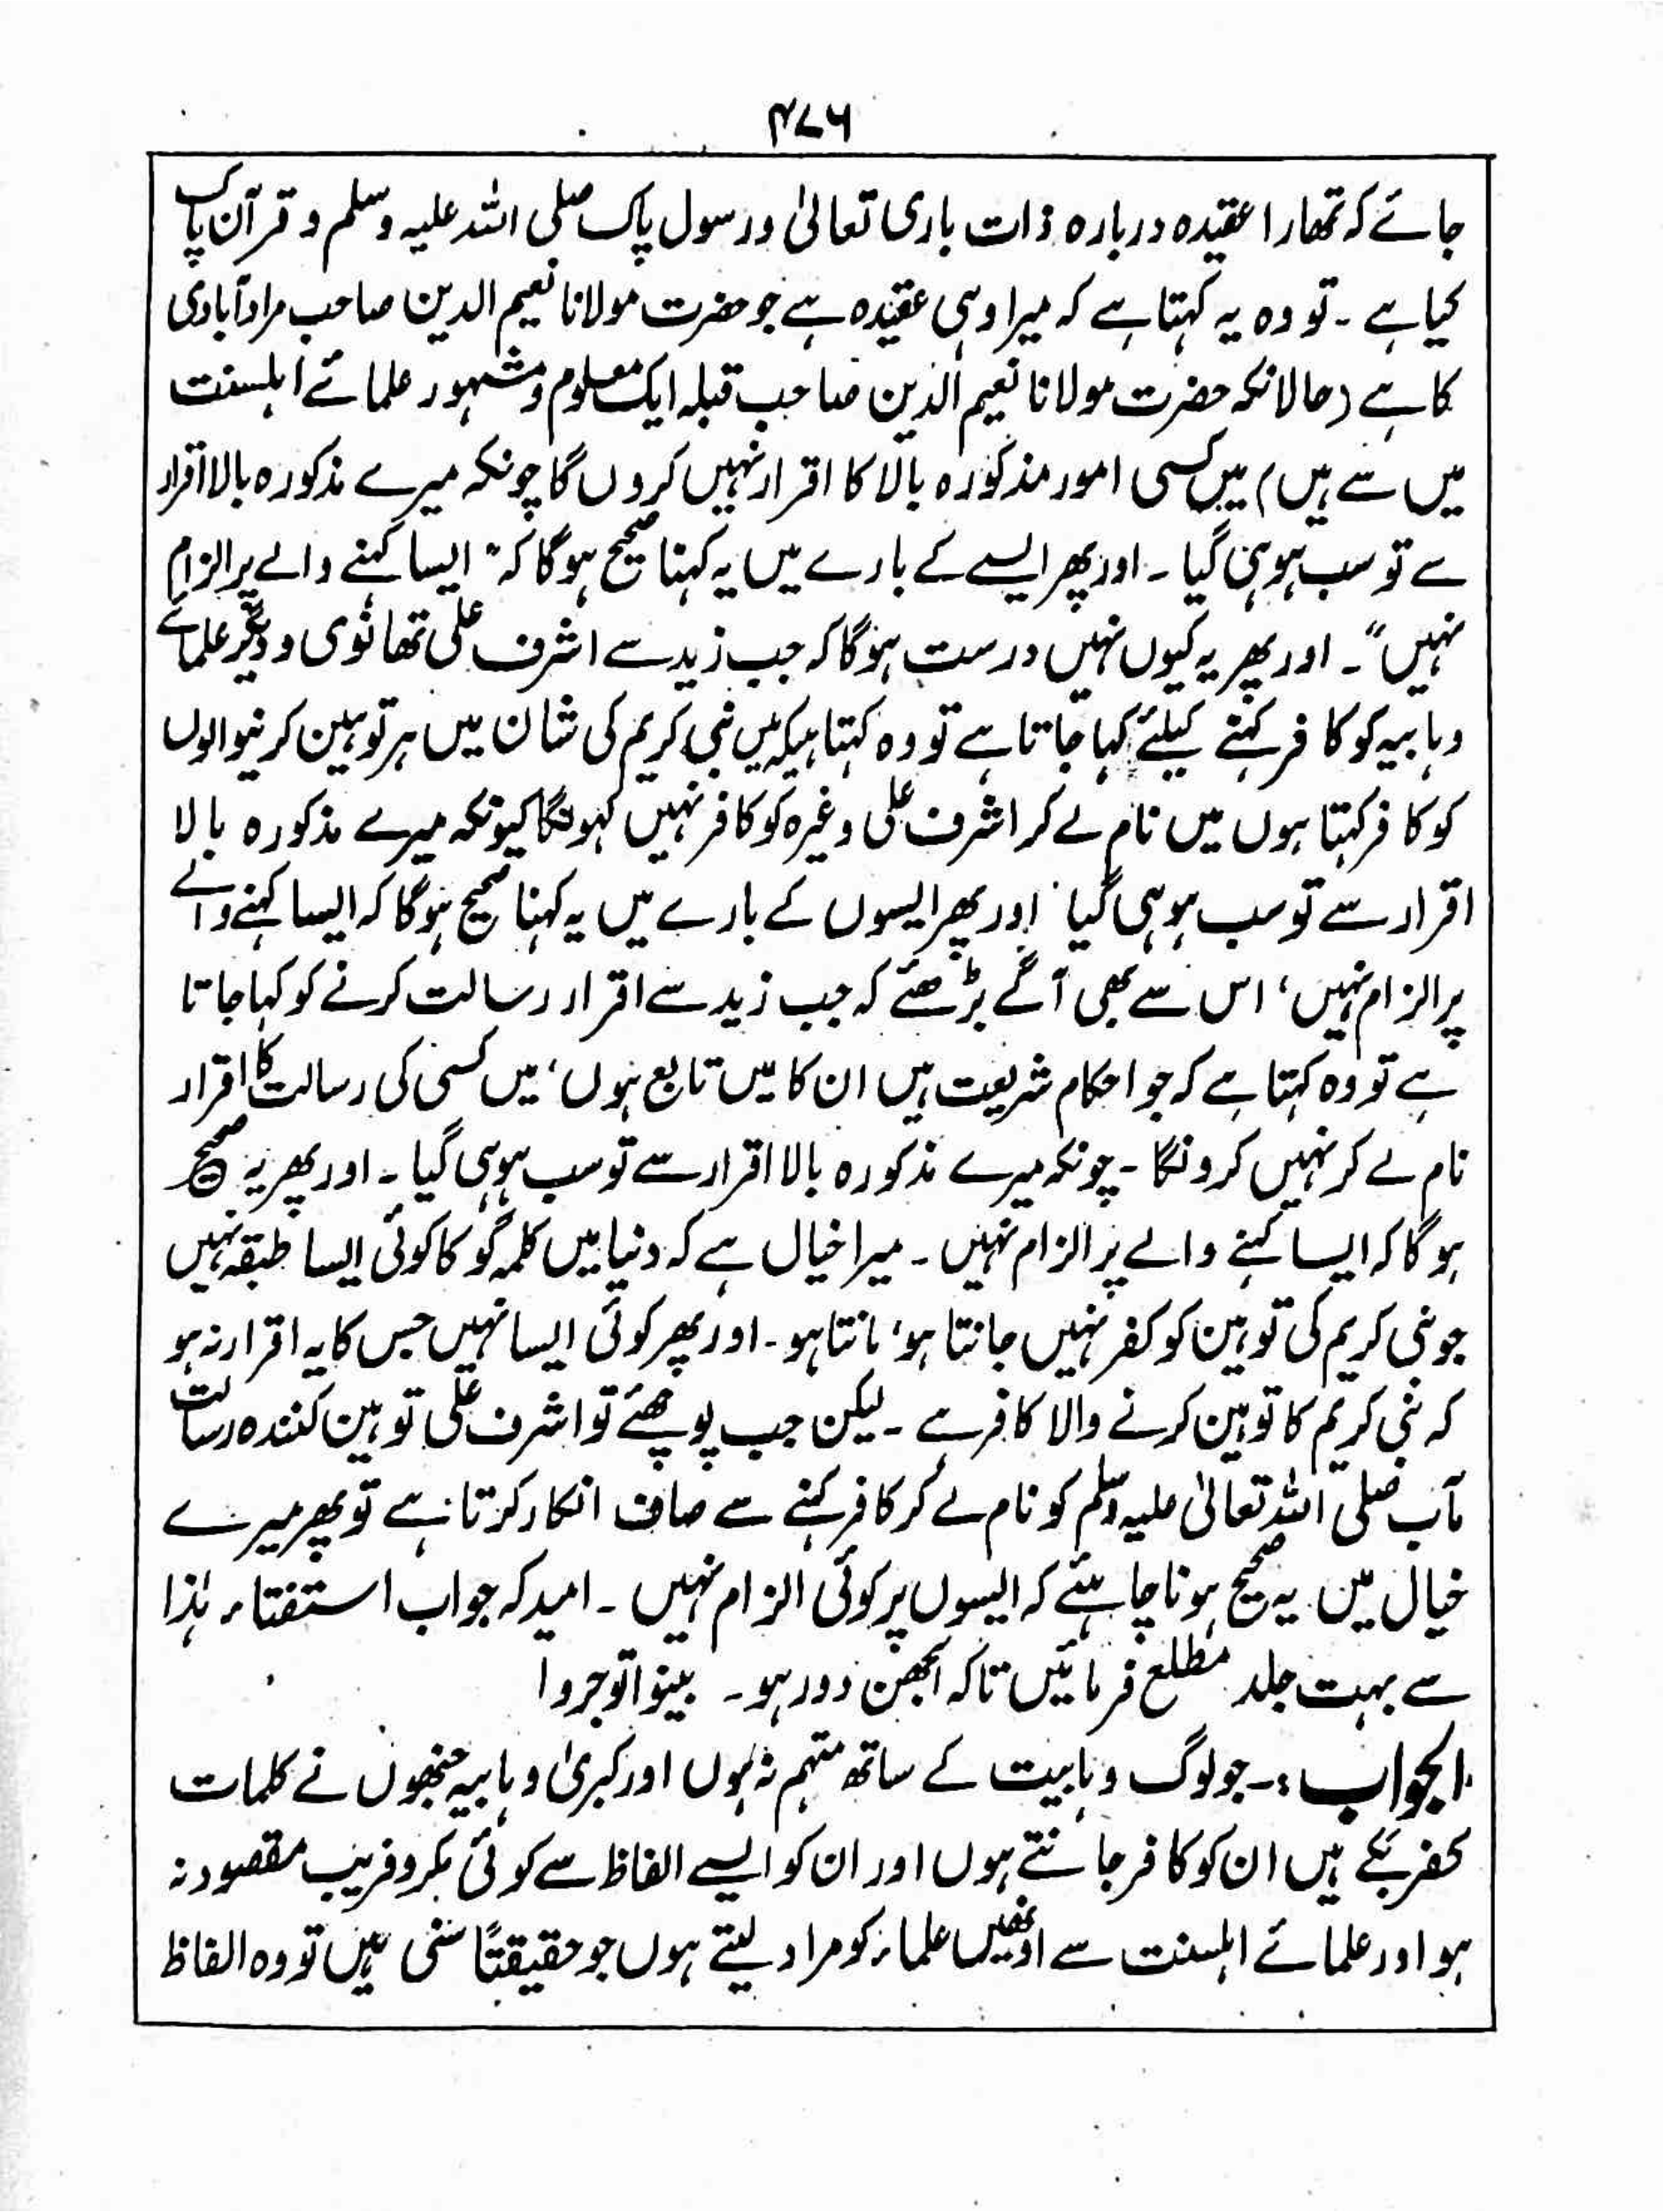 ۴۷۶
جائے کہ تمھارا عقیدہ دربارہ ذات باری تعالیٰ ورسول پاک صلی اللہ علیہ وسلم و قرآن پاک
کیا ہے ۔ تو وہ یہ کہتا ہے کہ میرا وہی عقیدہ ہے جو حضرت مولانا نعیم الدین صاحب مرادآبادی
کا ہے (حالانکہ حضرت مولانا نعیم الدین صاحب قبلہ ایک معلوم و مشہور علمائے اہلسنت
میں سے ہیں) میں کسی امور مذکورہ بالا کا اقرار نہیں کروں گا چونکہ میرے مذکورہ بالا اقرار
سے تو سب ہو ہی گیا ۔ اور پھر ایسے کے بارے میں یہ کہنا صحیح ہوگا کہ " ایسا کہنے والے پر الزام
نہیں " ۔ اور پھر یہ کیوں نہیں درست ہوگا کہ جب زید سے اشرف علی تھانوی و دیگر علمائے
وہابیہ کو کافر کہنے کیلئے کہا جاتا ہے تو وہ کہتا ہیکہ میں نبی کریم کی شان میں ہر توہین کرنیوالوں
کو کافر کہتا ہوں میں نام لے کر اشرف علی وغیرہ کو کافر نہیں کہوں گا کیونکہ میرے مذکورہ بالا
اقرار سے تو سب ہو ہی گیا ' اور پھر ایسوں کے بارے میں یہ کہنا صحیح ہوگا کہ ایسا کہنے والے
پر الزام نہیں ، اس سے بھی آگے بڑھئے کہ جب زید سے اقرار رسالت کرنے کو کہا جاتا
ہے تو وہ کہتا ہے کہ جو احکام شریعت ہیں ان کا میں تابع ہوں ، میں کسی کی رسالت کا اقرار
نام لے کر نہیں کرونگا ۔ چونکہ میرے مذکورہ بالا اقرار سے تو سب ہو ہی گیا ۔ اور پھر یہ صحیح
ہوگا کہ ایسا کہنے والے پر الزام نہیں ۔ میرا خیال ہے کہ دنیا میں کلمہ گو کا کوئی ایسا طبقہ نہیں
جو نبی کریم کی توہین کو کفر نہیں جانتا ہو ، مانتا ہو ۔ اور پھر کوئی ایسا نہیں جس کا یہ اقرار نہ ہو
کہ نبی کریم کا توہین کرنے والا کافر ہے ۔ لیکن جب پوچھئے تو اشرف علی توہین کنندہ رسالت
مآب صلی اللہ تعالیٰ علیہ وسلم کو نام لے کر کافر کہنے سے صاف انکار کرتا ہے تو پھر میرے
خیال میں یہ صحیح ہونا چاہئے کہ ایسوں پر کوئی الزام نہیں ۔ امید کہ جواب استفتاء ہٰذا
سے بہت جلد مطلع فرمائیں تاکہ الجھن دور ہو ۔ بینوا توجروا
الجواب :۔ جو لوگ وہابیت کے ساتھ متہم نہ ہوں اور کبریٰ وہابیہ جنھوں نے کلمات
کفر بکے ہیں ان کو کافر جانتے ہوں اور ان کو ایسے الفاظ سے کوئی مکر و فریب مقصود نہ
ہو اور علمائے اہلسنت سے اونھیں علماء کو مراد لیتے ہوں جو حقیقتًا سنی ہیں تو وہ الفاظ